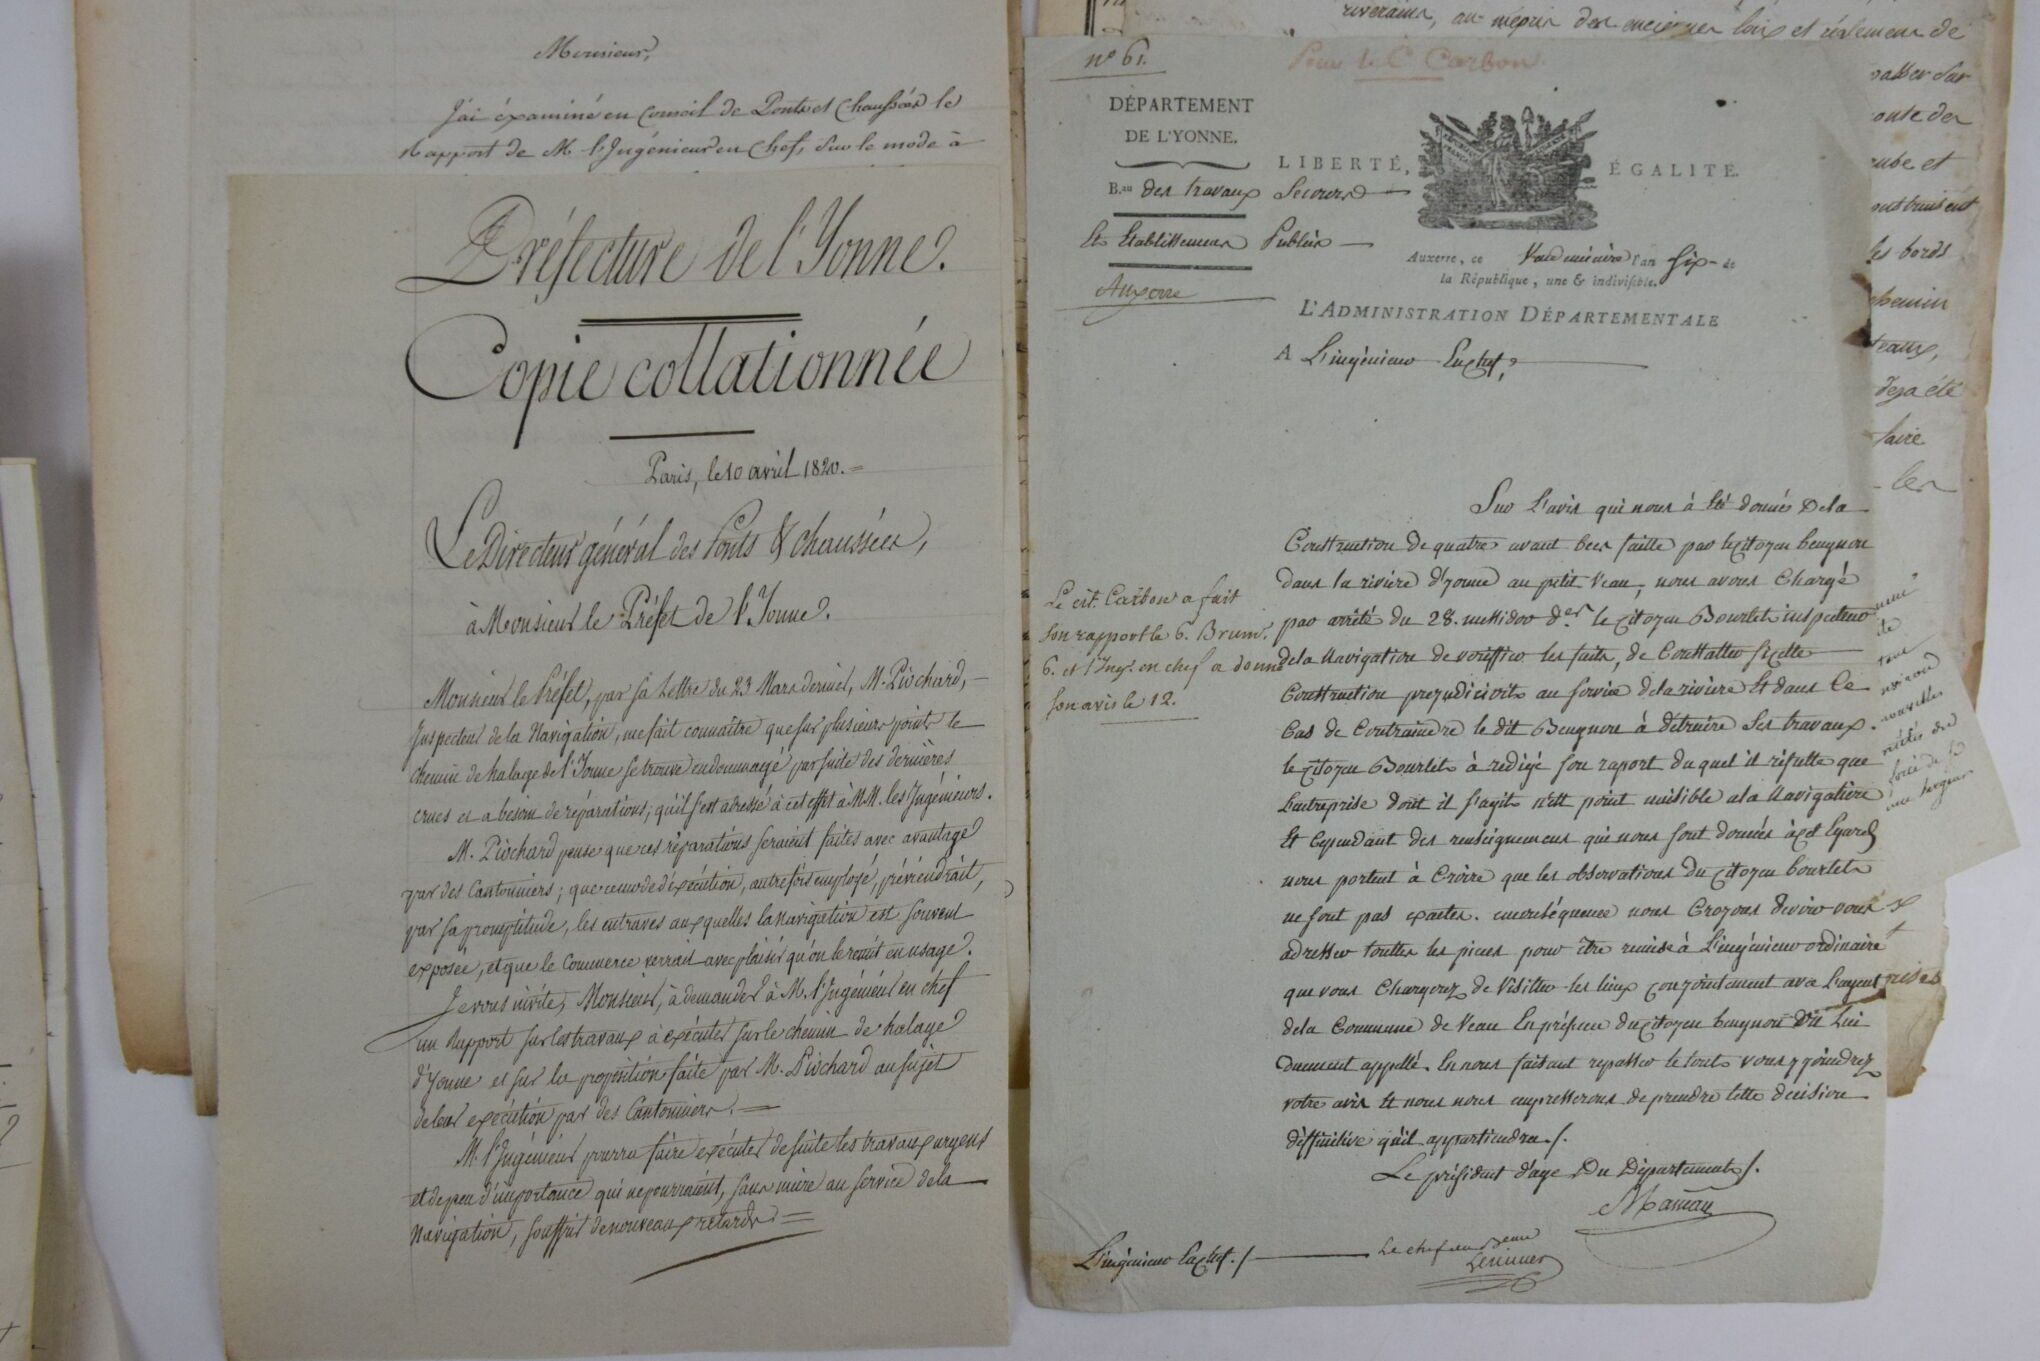 Monsieur,
J'ai éxaminé en Conseil de Ponts et Chaussées le
Rapport de M. l'Ingénieur en Chef, sur le mode à
Préfecture de l'Yonne.
Copie collationnée
Paris, le 10 avril 1820.
Le Directeur général des Ponts & chaussées,
à Monsieur le Préfet de l'Yonne.
Monsieur le Préfet, par sa Lettre du 23 Mars dernier, M. Piochard,
Inspecteur de la Navigation, me fait connaître que sur plusieurs points le
chemin de halage de l'Yonne se trouve endommagé par suite des dernières
crues et a besoin de réparations; qu'il s'est adressé à cet effet à MM. les Ingénieurs.
M. Piochard pense que ces réparations seraient faites avec avantage
par des Cantonniers; que ce mode d'éxécution, autrefois employé, préviendrait,
par sa promptitude, les entraves auxquelles la navigation est souvent
exposée, et que le Commerce verrait avec plaisir qu'on le remit en usage.
Je vous invite, Monsieur, à demander à M. l'Ingénieur en chef
un Rapport sur les travaux à exécuter sur le chemin de halage
d'Yonne et sur la proposition faite par M. Piochard au sujet
de leur exécution par des Cantonniers.
M. l'Ingénieur pourra faire exécuter de suite les travaux urgens
et de peu d'importance qui ne pourraient, sans nuire au service de la
Navigation, souffrir de nouveaux retards.
riverains, au mépris des anciennes loix et réglemens de
n° 61.
Pour le C. Carbon
DÉPARTEMENT
DE L'YONNE.
LIBERTÉ, ÉGALITÉ.
B.au des travaux Secours
Et Etablissemens Publics
Auxerre
Auxerre, ce Vendémiaire l'an six de
la République, une & indivisible.
L'ADMINISTRATION DÉPARTEMENTALE
A L'ingénieur En chef,
Sur l'avis qui nous à été donnés de la
Construction de quatre avant becs faitte par le Citoyen Beugnon
dans la rivière d'Yonne au petit Veau, nous avons Chargé
par arrêté du 28. messidor d.er le Citoyen Bourlet inspecteur
de la Navigation de vériffier les faits, de Constatter si cette
Construction préjudicioit au service de la rivière Et dans ce
Cas de Contraindre le dit Beugnon à détruire ses travaux.
le Citoyen Bourlet à rédigé son raport duquel il résulte que
l'entreprise dont il s'agit n'est point nuisible a la Navigation
Et Cependant des renseignemens qui nous sont donnés à cet Egard
nous portent à Croire que les observations du Citoyen Bourlet
ne sont pas exactes. en conséquence nous Croyons devoir vous
adresser touttes les pieces pour être remise à L'ingénieur ordinaire
que vous Chargerez de Visitter les lieux Conjointement avec l'agent
de la Commune de Veau En présence du Citoyen Beugnon Ou Lui
Duement appellé. En nous faisant repasser le tout vous y joindrez
votre avis Et nous nous empresserons de prendre telle décision
déffinitive qu'il appartiendra.
Le président d'age Du Département.
L'ingénieur En chef.
Le cit. Carbon a fait
son rapport le 6. Brum.
6. et l'Ing.r en chef a donné
son avis le 12.
passer sur
bords
chemin
deja été
faire
les